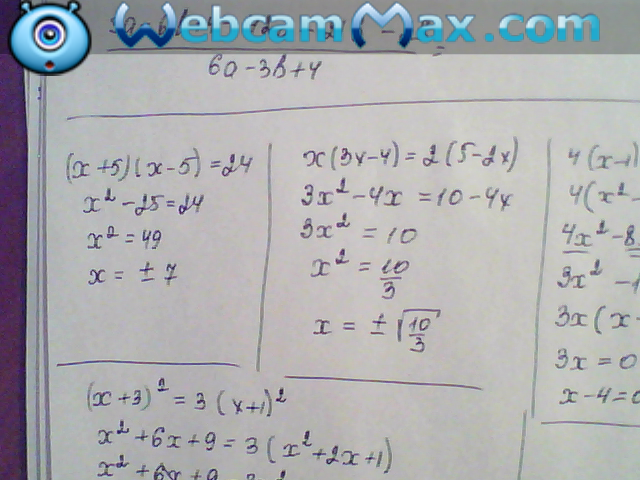 WebcamMax.com
6a-3b+4
(x+5)(x-5)=24
x²-25=24
x²=49
x=±7
x(3x-4)=2(5-2x)
3x²-4x=10-4x
3x²=10
x²=10/3
x=±√(10/3)
4(x-1)
4(x²-
4x²-8
3x²-1
3x(x-
3x=0
x-4=0
(x+3)²=3(x+1)²
x²+6x+9=3(x²+2x+1)
x²+6x+9